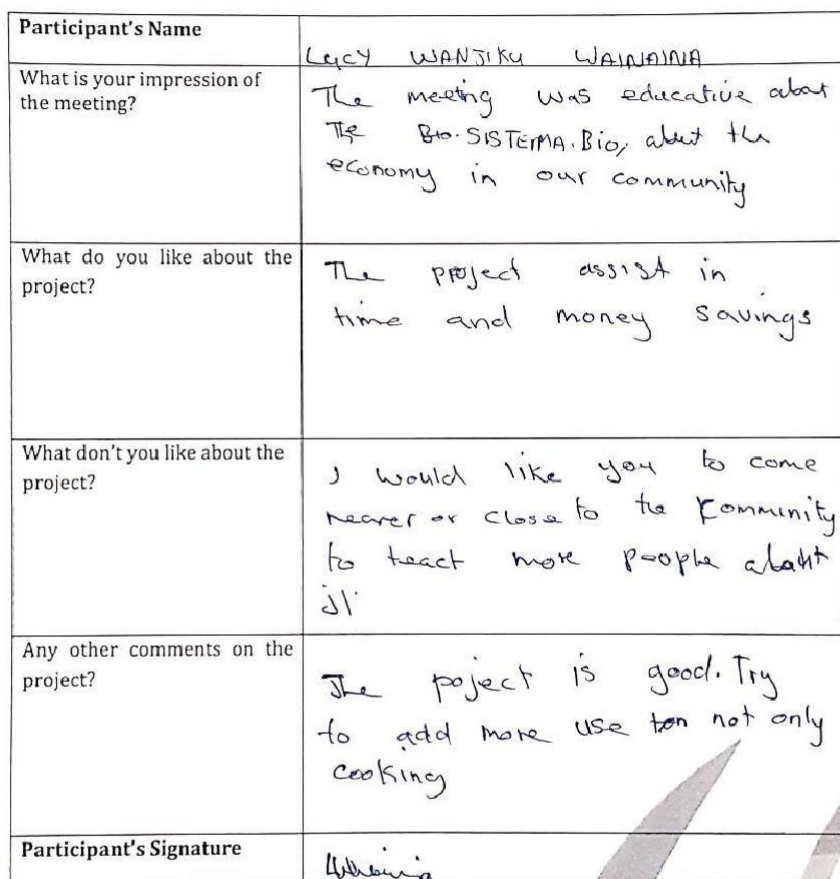 Participant's Name
LUCY WANJIKU WAINAINA
What is your impression of
the meeting?
The meeting was educative about
The Bio.SISTEMA.Bio, about the
economy in our community
What do you like about the
project?
The project assist in
time and money savings
What don't you like about the
project?
I would like you to come
nearer or close to the community
to teact more people about
it
Any other comments on the
project?
The poject is good. Try
to add more use not only
cooking
Participant's Signature